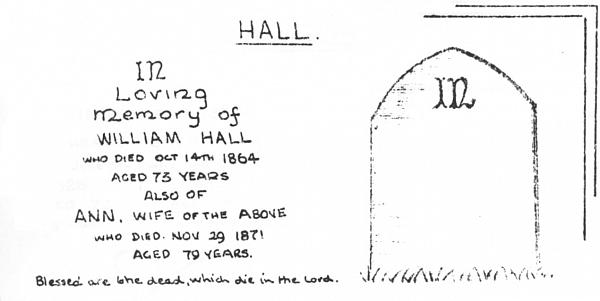 HALL.
In
Loving
memory of
WILLIAM HALL
WHO DIED OCT 14TH 1864
AGED 73 YEARS
ALSO OF
ANN, WIFE OF THE ABOVE
WHO DIED. NOV 29 1871
AGED 79 YEARS.
Blessed are the dead, which die in the Lord.
IN